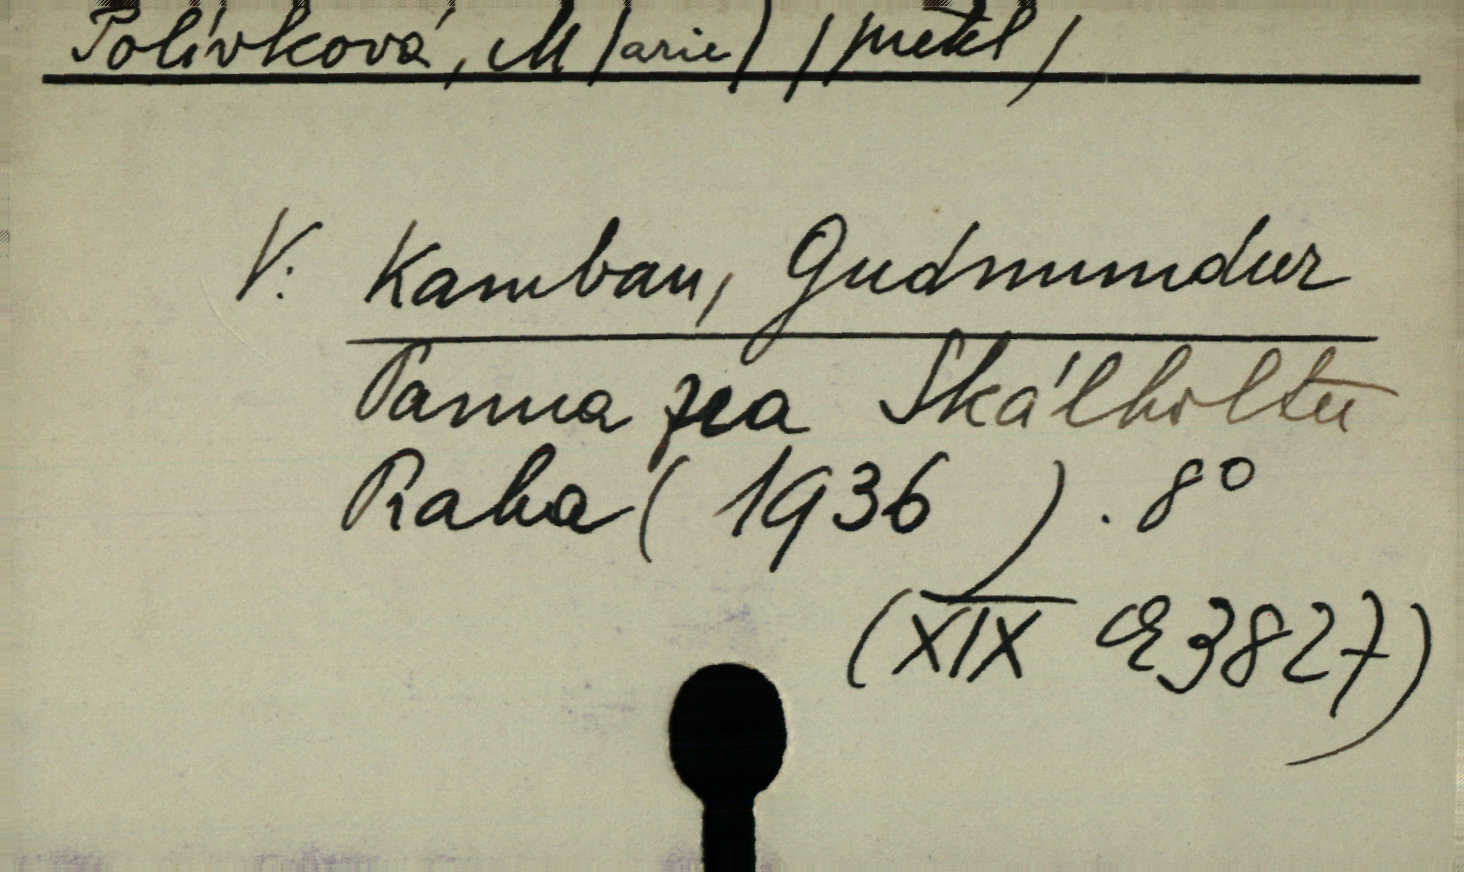 Polívková, M/arie/ /překl/
V: Kamban, Gudmundur
Panna ze Skálholtu
Praha (1936 ). 8°
(XIX E 3827)